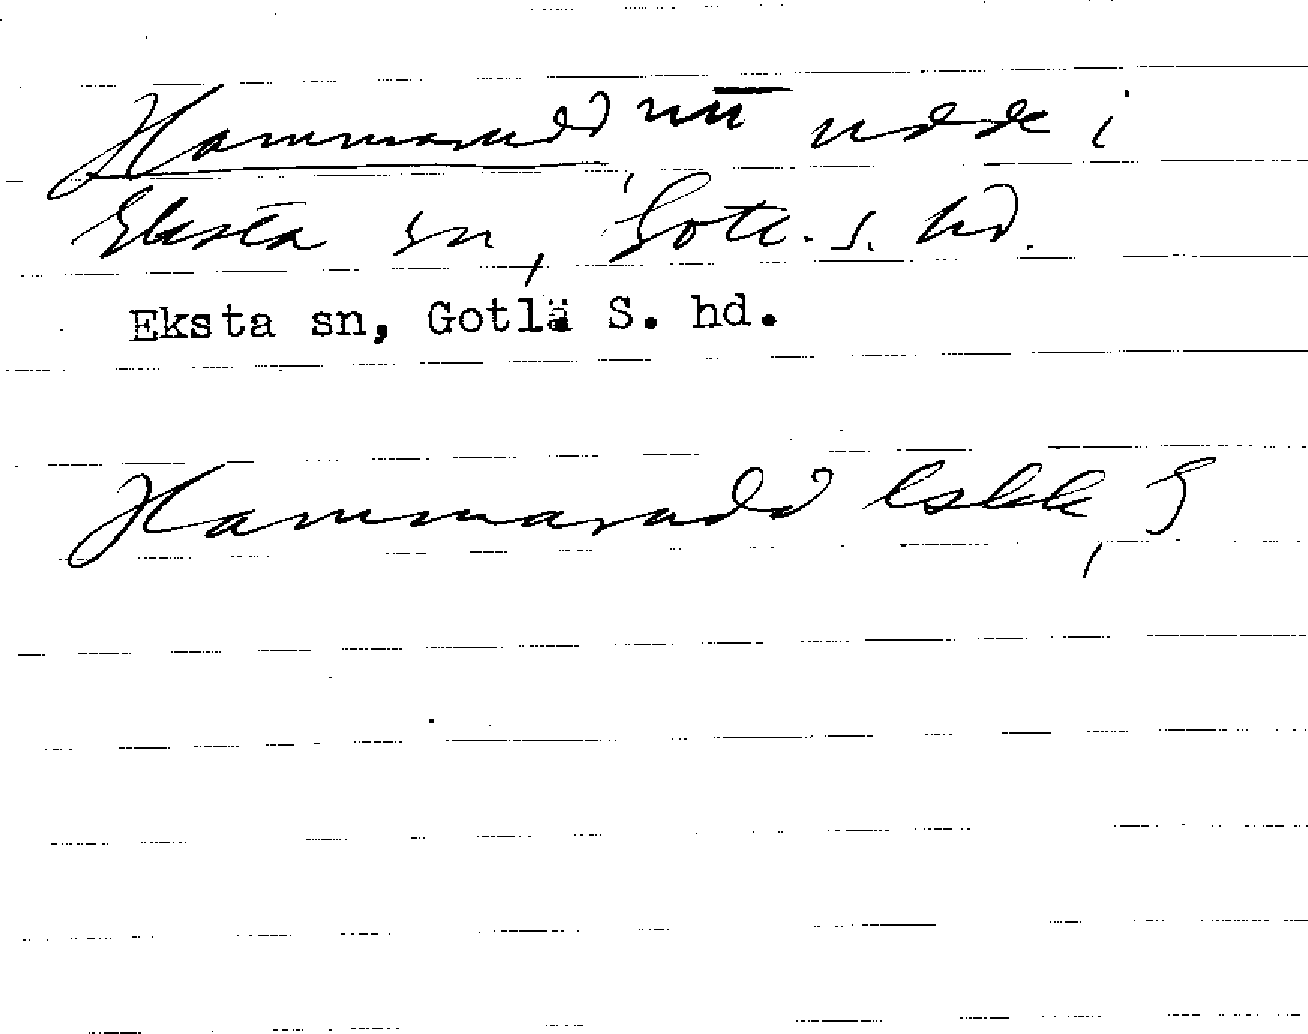 Hammarudd udde i
Eksta sn, Gotl. S. hd.
Eksta sn, Gotlä S. hd.
Hammarudd